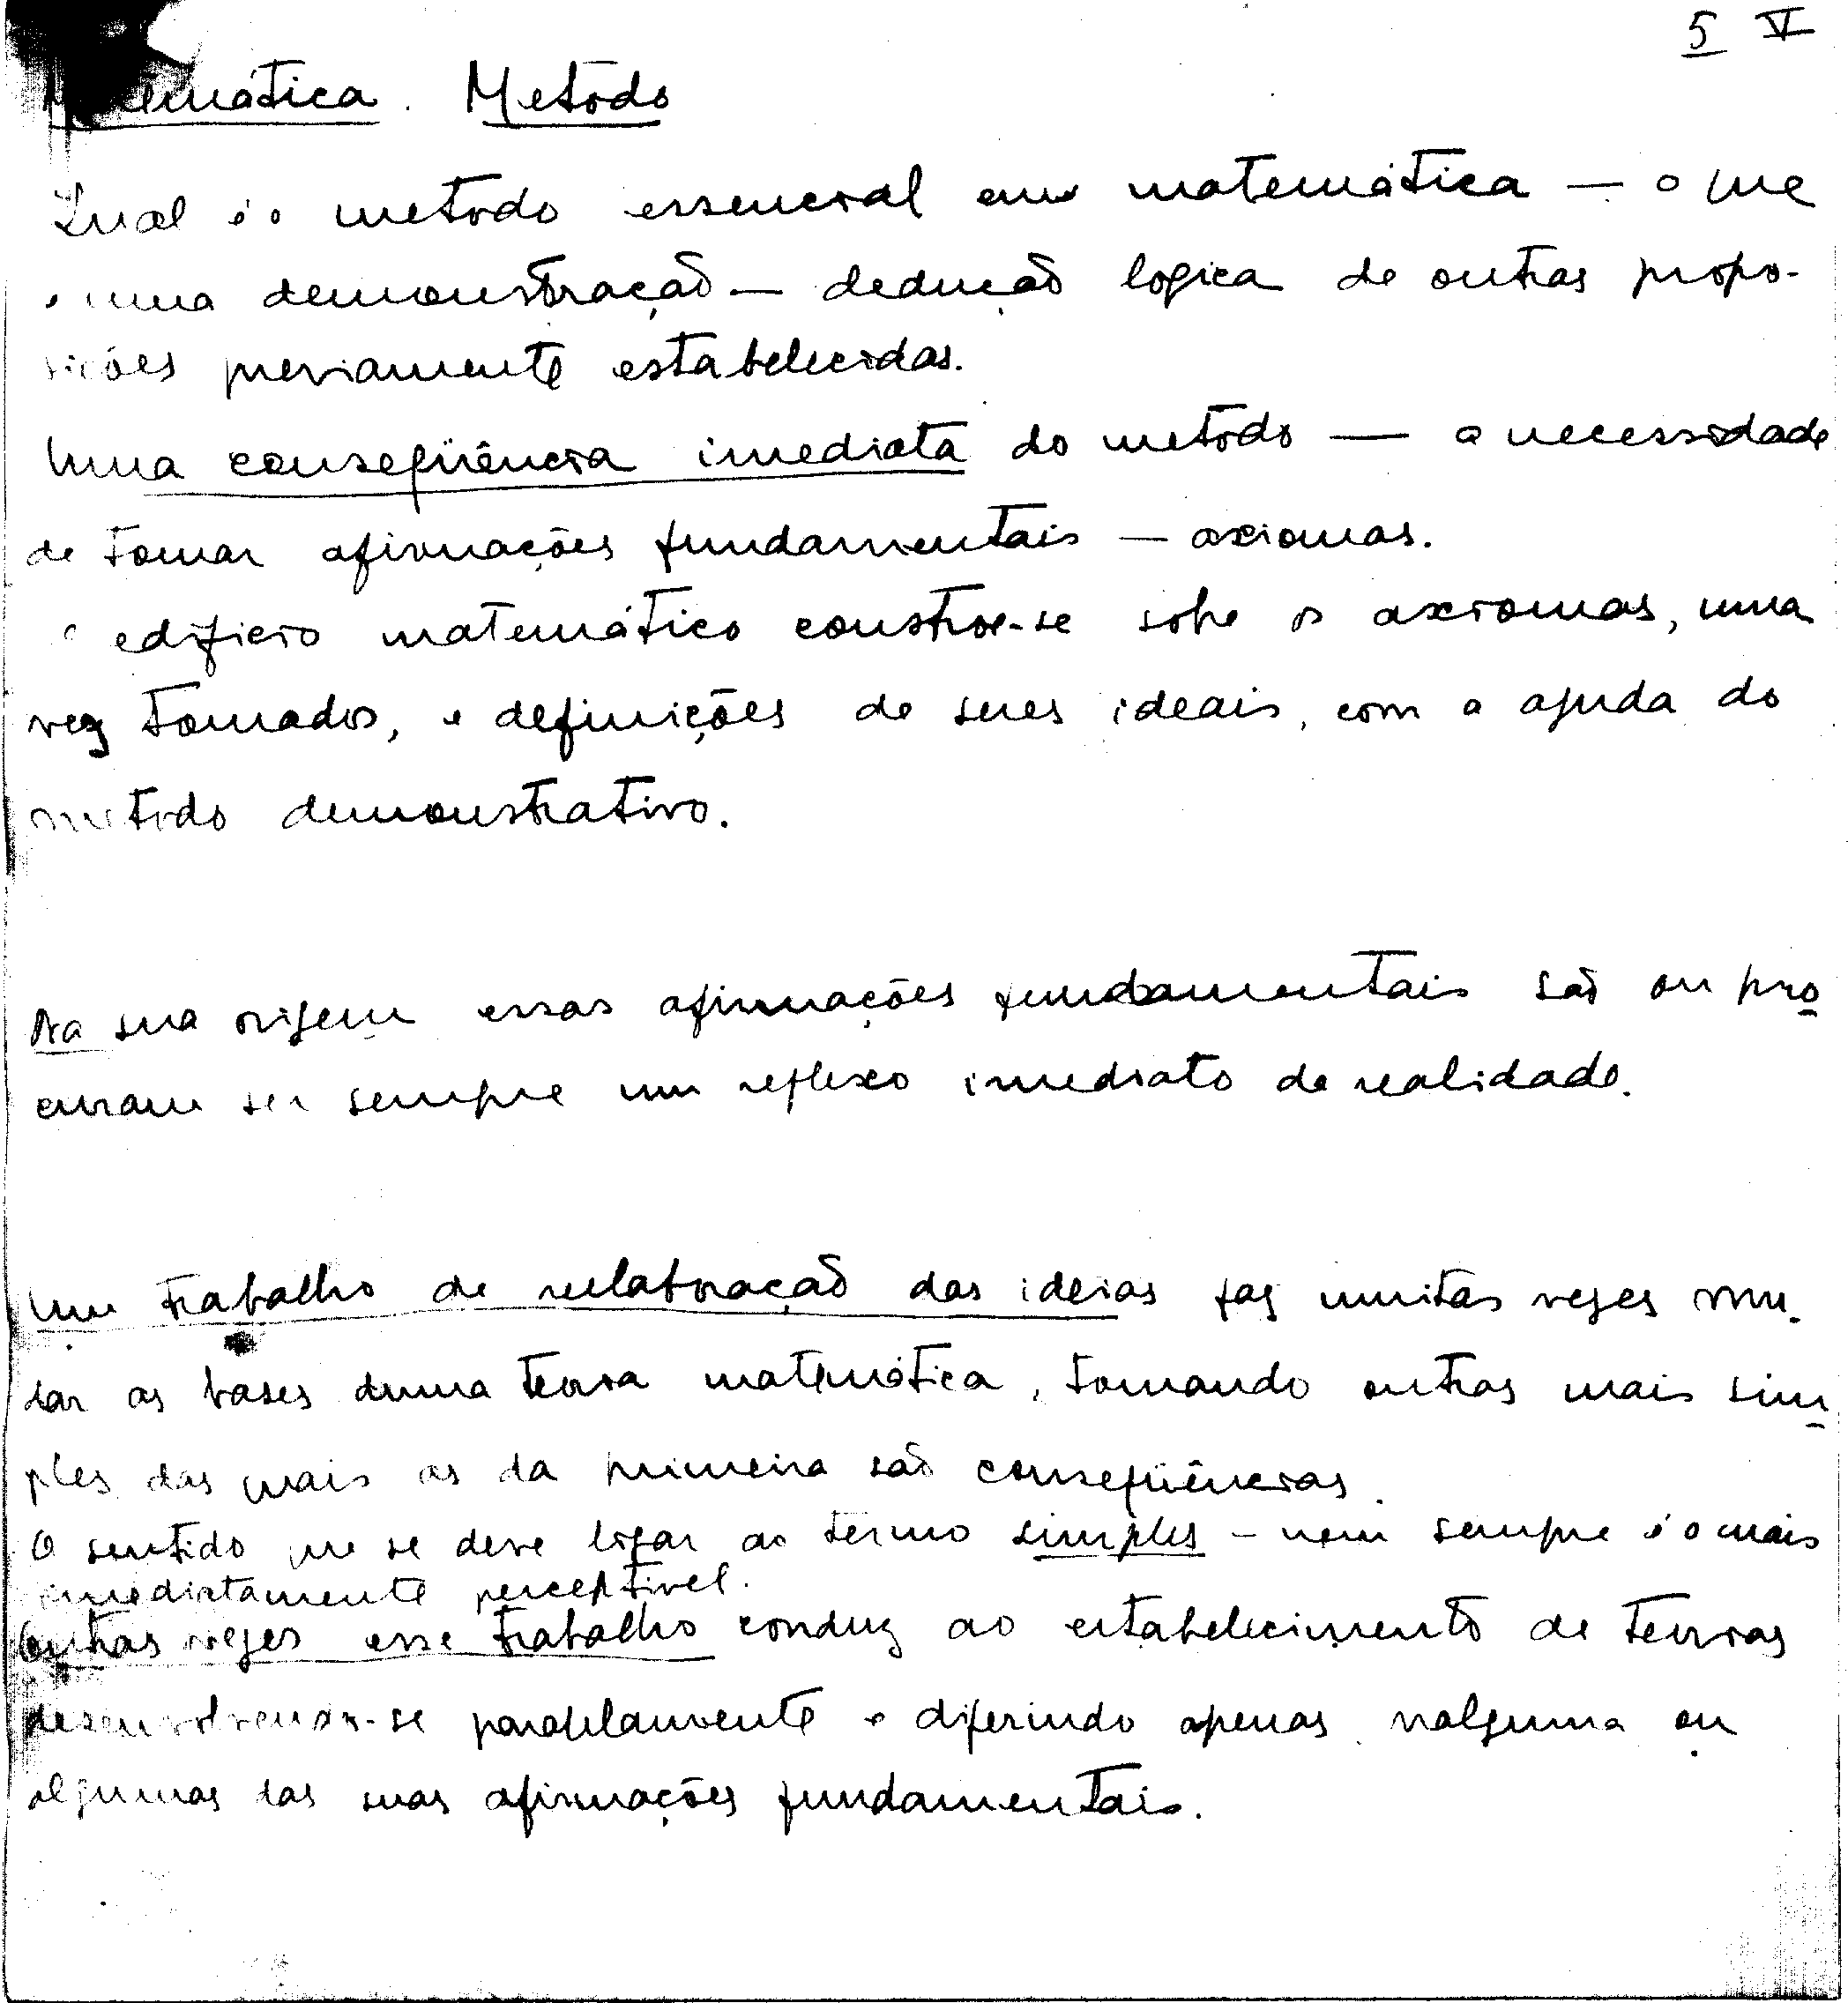 5 V
Matemática. Metodo
Qual é o metodo essencial em matemática — o que
é uma demonstração — dedução logica de outras propo-
sições previamente estabelecidas.
Uma conseqüência imediata do metodo — a necessidade
de tomar afirmações fundamentais — axiomas.
O edificio matemático constroe-se sobre os axiomas, uma
vez tomados, e definições de seres ideais, com a ajuda do
metodo demonstrativo.
Na sua origem essas afirmações fundamentais são ou pro
curam ser sempre um reflexo imediato da realidade.
Um trabalho de reelaboração das ideias faz muitas vezes mu-
dar as bases duma teoria matemática, tomando outras mais sim
ples das quais as da primeira são conseqüências.
O sentido que se deve ligar ao termo simples - nem sempre é o mais
imediatamente perceptivel.
Outras vezes esse trabalho conduz ao estabelecimento de teorias
desenvolvendo-se paralelamente e diferindo apenas nalguma ou
algumas das suas afirmações fundamentais.